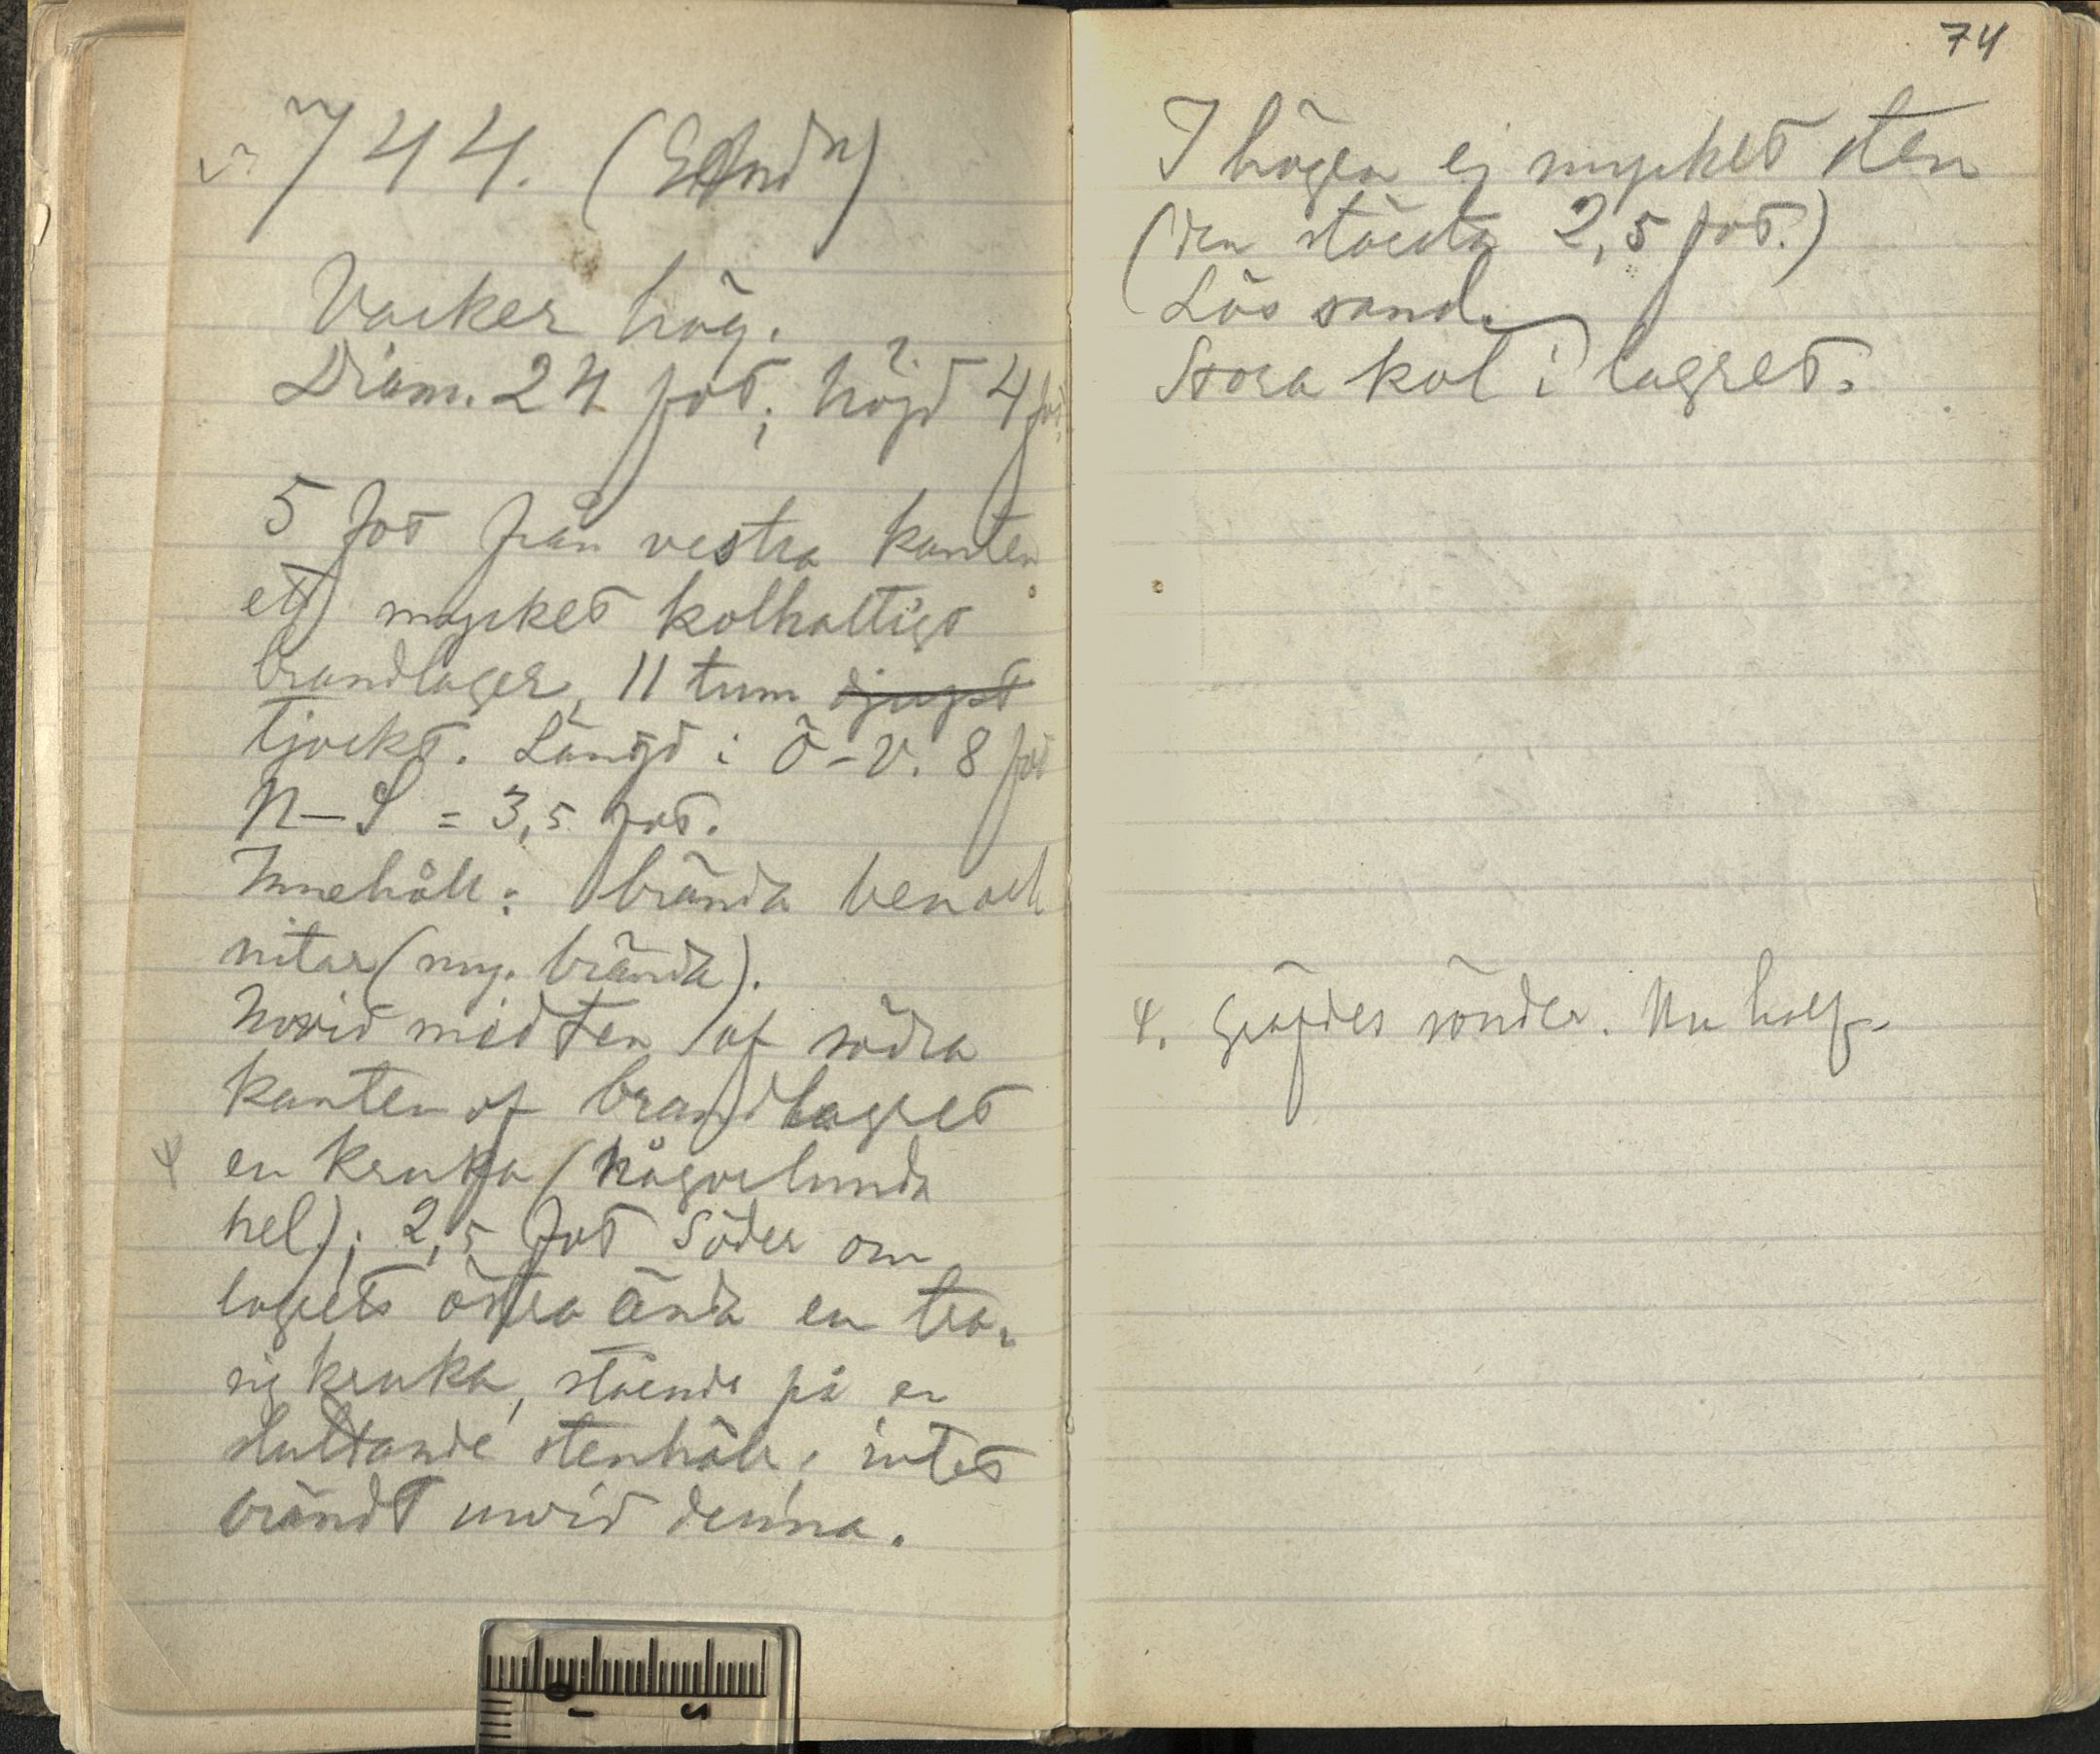 744. 
Vacker hög.
Diam. 24 fot; höjd 4 fot.
5 fot från vestra kanten
ett mycket kolhaltigt
brandlager, 11 tum djupt
tjockt. Längd i Ö-V. 8 fot
N—S = 3,5 fot.
Innehåll: brända ben och
nitar (my. brända).
Invid midten af södra
kanten af brandlagret
4 en kruka (någorlunda
hel); 2,5 fot söder om
lagrets östra ända en tra-
sig kruka, stående på en
sluttande stenhäll; intet
brändt invid denna.
74
I högen ej mycket sten
(den största 2,5 fot.)
Lös sand.
Stora kol i lagret.
4. Gräfdes sönder. Nu half.